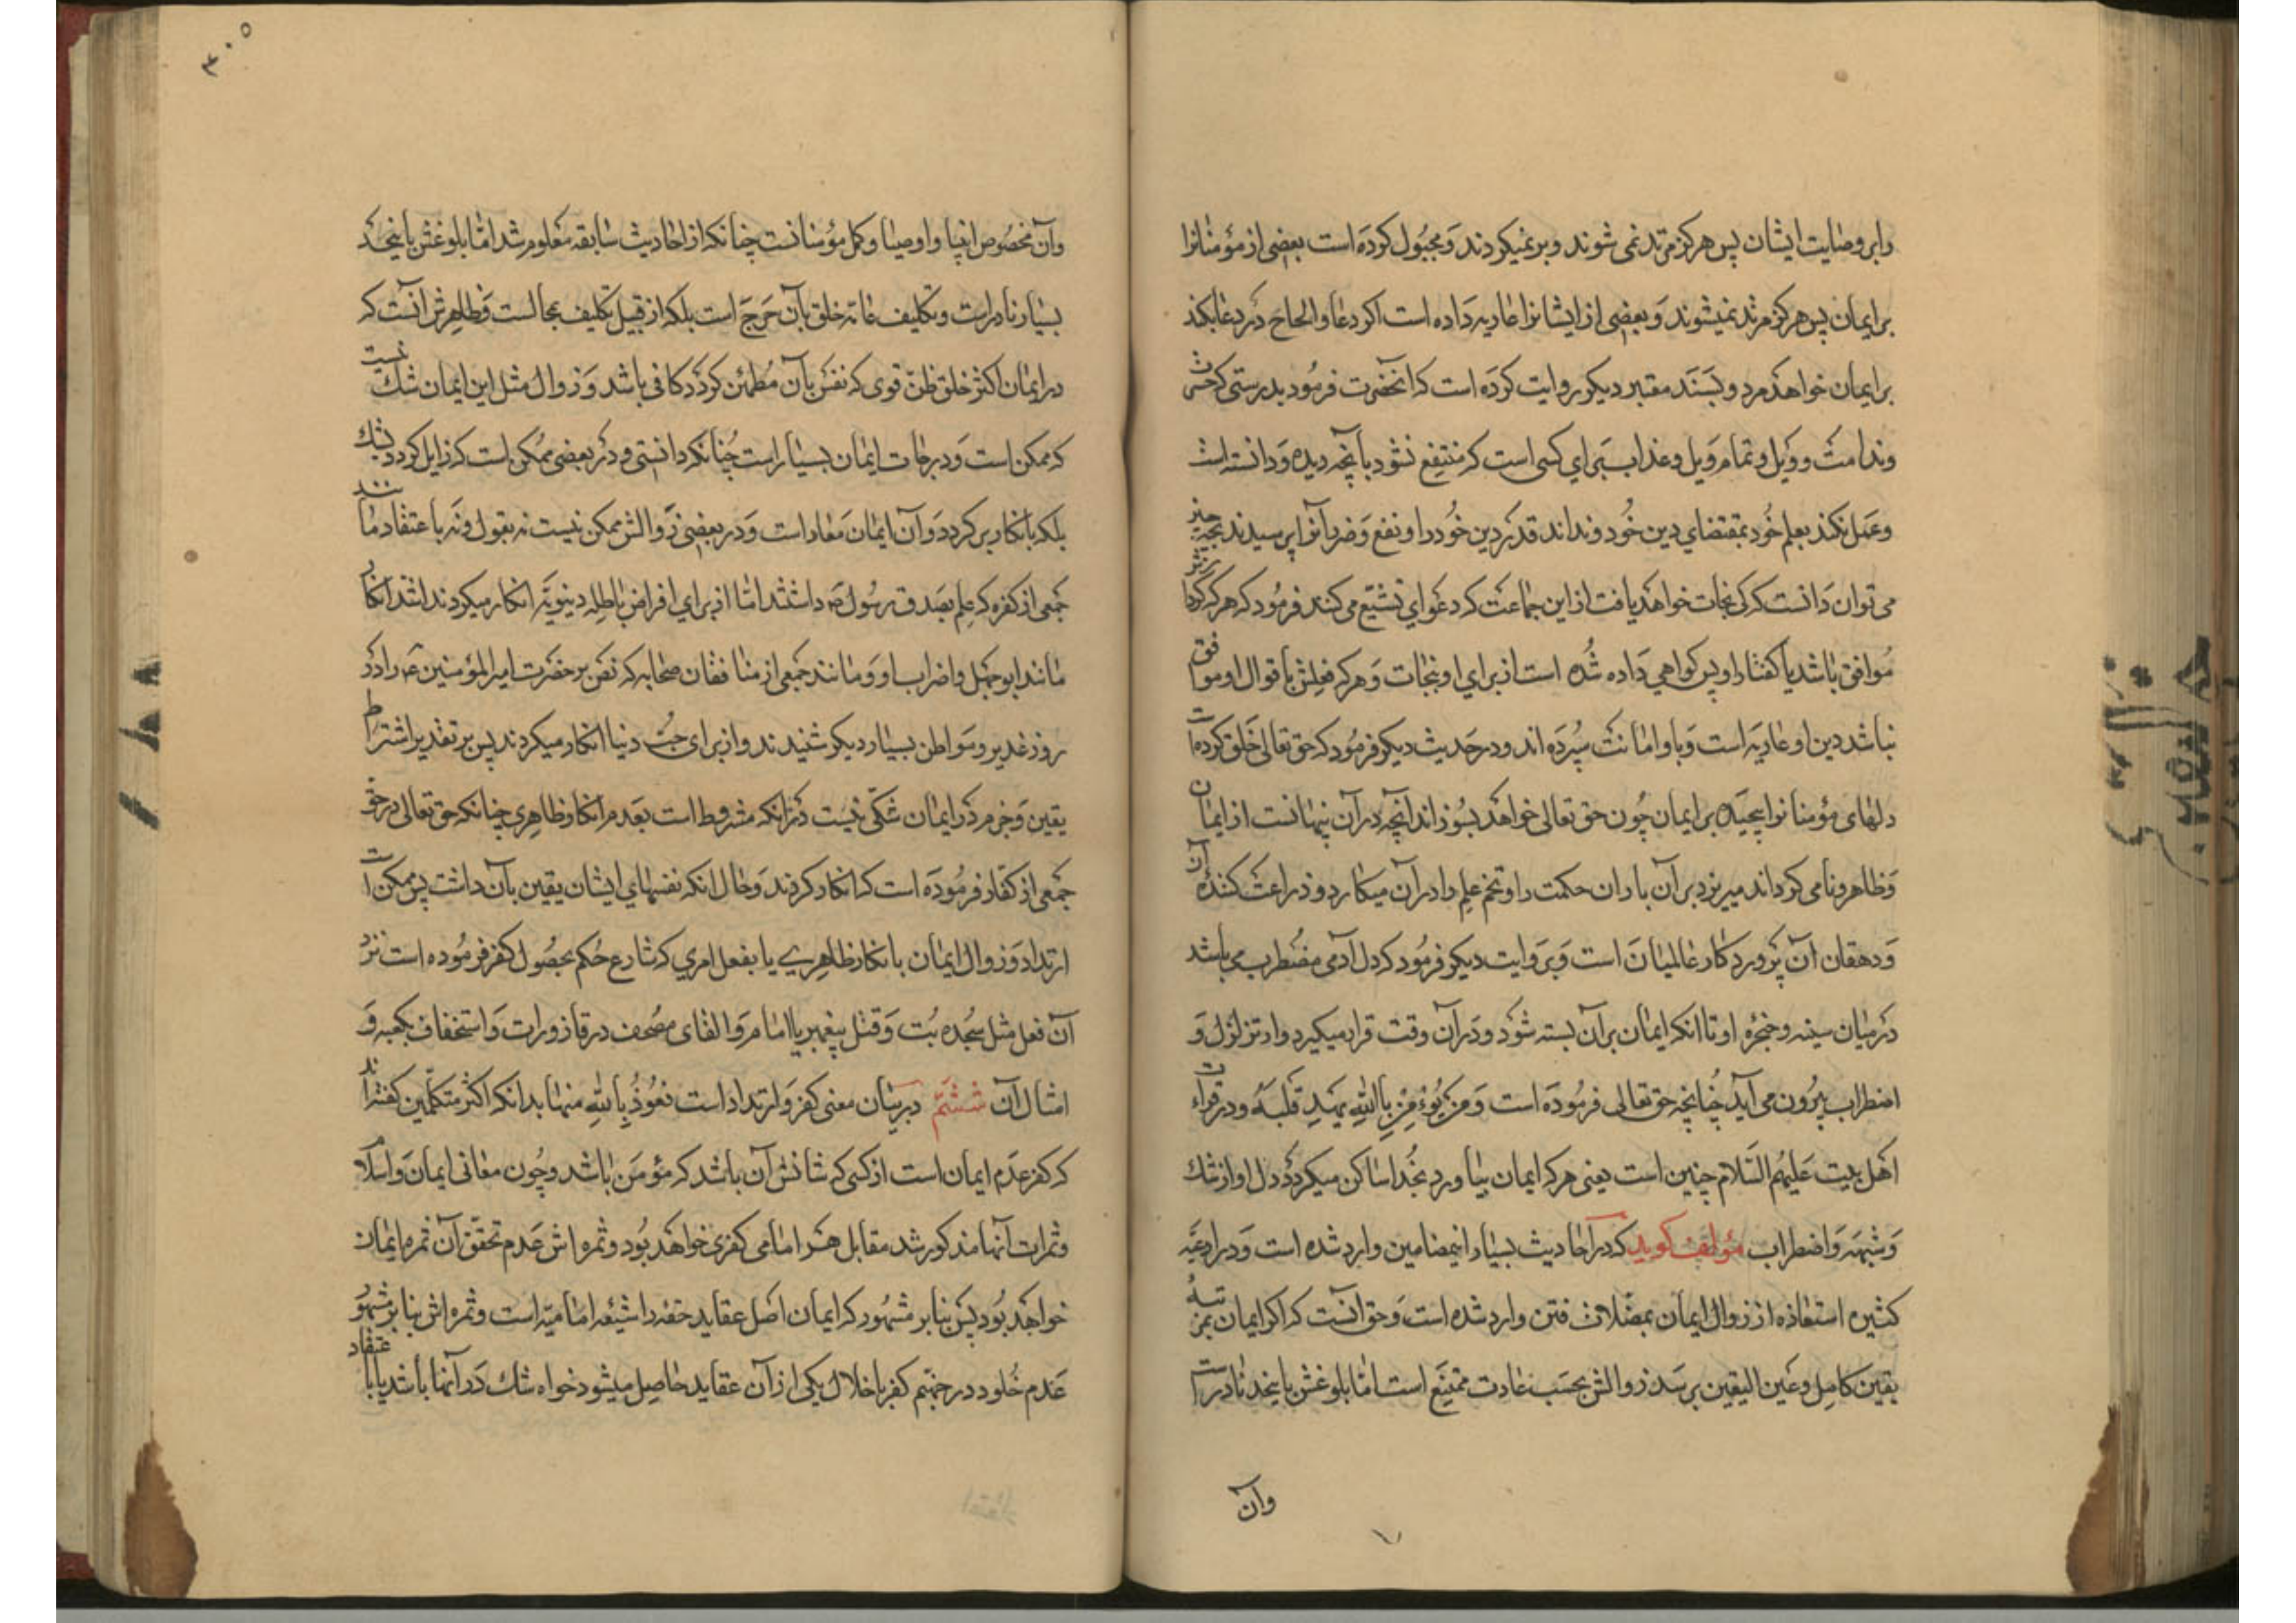 را بر وصایت ایشان پس هرگز مرتد نمی شوند و بر نمیگردند و مجبول کرده است بعضی از مؤمنانرا
بر ایمان پس هرگز مرتد نمیشوند و بعضی از ایشانرا عاریه داده است اگر دعا و الحاح در دعا بکند
بر ایمان خواهد مرد و بسند معتبر دیگر روایت کرده است که انحضرت فرمود بدرستی که حسرت
وندامت و ویل و تمام ویل و عذاب برای کسی است که منتفع نشود بآنچه دیده و دانسته است
و عمل نکند بعلم خود بمقتضای دین خود و نداند قدر دین خود را و نفع و ضرر آنرا پرسیدند بچه چیز
می توان دانست که کی نجات خواهد یافت از این جماعت که دعوای تشیع می کنند فرمود که هر که کردارش
موافق باشد با گفتار او پس گواهی داده شده است از برای او بنجات و هر که فعلش با قوال او موافق
نباشد دین او عاریه است و باو امانت سپرده اند و در حدیث دیگر فرمود که حق تعالی خلق کرده است
دلهای مؤمنانرا پیچیده بر ایمان چون حق تعالی خواهد بسوزاند انچه در آن پنهانست از ایمان
و ظاهر و نامی گرداند میریزد بر آن باران حکمت را و تخم علم را در آن میکارد و زراعت کننده آن
و دهقان آن پروردگار عالمیان است و بروایت دیگر فرمود که دل آدمی مضطرب می باشد
در میان سینه و حنجره او تا انکه ایمان بر آن بسته شود و در آن وقت قرار میگیرد و از تزلزل و
اضطراب بیرون می آید چنانچه حق تعالی فرموده است و من یؤمن بالله یهد قلبه و در قراءت
اهل بیت علیهم السلام چنین است یعنی هر که ایمان بیاورد بخدا ساکن میگردد دل او از شک
و شبهه و اضطراب مؤلف گوید که در احادیث بسیار اینمضامین وارد شده است و در ادعیه
کثیره استعاذه از زوال ایمان بمضلات فتن وارد شده است و حق انست که اگر ایمان بمرتبه
یقین کامل و عین الیقین برسد زوالش بحسب عادت ممتنع است امّا بلوغش باینحد نادر است
وآن
٣٠٥
وآن مخصوص انبیا و اوصیا و کمّل مؤمنانست چنانکه از احادیث سابقه معلوم شد امّا بلوغش باینحد
بسیار نادر است و تکلیف عامّه خلق بآن حرج است بلکه از قبیل تکلیف بمحالست و ظاهرش آنست که
در ایمان اکثر خلق ظن قوی که نفس بآن مطمئن گردد کافی باشد و زوال مثل این ایمان شک نیست
که ممکن است و درجات ایمان بسیار است چنانکه دانستی و در بعضی ممکن است که زایل گردد بشک
بلکه بانکار بر گردد و آن ایمان معاد است و در بعضی زوالش ممکن نیست نه بقول و نه باعتقاد مانند
جمعی از کفره که علم بصدق رسول ص داشتند امّا از برای اغراض باطله دنیویّه انکار میکردند اشد انکار
مانند ابو جهل و اضراب او و مانند جمعی از منافقان صحابه که نص بر حضرت امیر المؤمنین ع را در
روز غدیر و مواطن بسیار دیگر شنیدند و از برای حب دنیا انکار میکردند پس بر تقدیر اشتراط
یقین و جزم در ایمان شکّی نیست در انکه مشروط است بعدم انکار ظاهری چنانکه حق تعالی در حق
جمعی از کفّار فرموده است که انکار کردند و حال انکه نفسهای ایشان یقین بآن داشت پس ممکن است
ارتداد و زوال ایمان بانکار ظاهری یا بفعل امری که شارع حکم بحصول کفر فرموده است نزد
آن فعل مثل سجده بت و قتل پیغمبر یا امام و القای مصحف در قاذورات و استخفاف بکعبه و
امثال آن ششم در بیان معنی کفر و ارتداد است نعوذ بالله منها بدانکه اکثر متکلّمین گفته‌اند
که کفر عدم ایمان است از کسی که شانش آن باشد که مؤمن باشد و چون معانی ایمان و اسلام
و ثمرات آنها مذکور شد مقابل هر امامی کفری خواهد بود و ثمره اش عدم تحقّق آن ثمره ایمان
خواهد بود پس بنا بر مشهور که ایمان اصل عقاید حقه را شیعه امامیّه است و ثمره اش بنا بر مشهور
عدم خلود در جهنّم کفر باخلال یکی از آن عقاید حاصل میشود خواه شک در آنها باشد یا با عتقاد